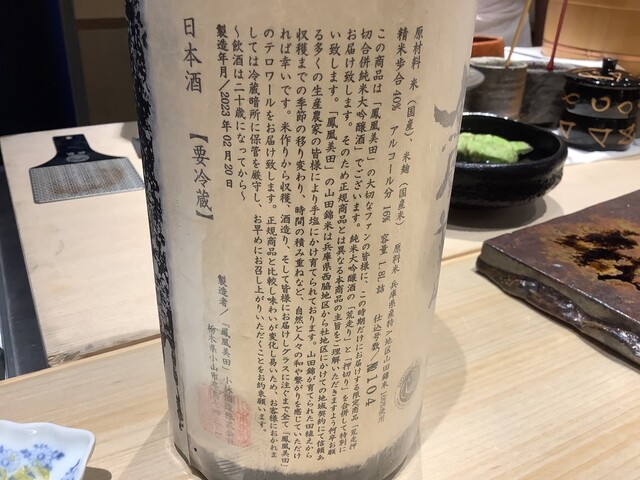 原材料 米（国産）、米麹（国産米） 原料米 兵庫県産特一地区山田錦米100％使用
精米歩合 40％ アルコール分 16％ 容量 1.8L詰 仕込号数／№104
この商品は「鳳凰美田」の大切なファンの皆様に、この時期だけにお届けする限定商品「荒走押
切合併純米大吟醸酒」でございます。純米大吟醸酒の「荒走り」と「押切り」を合併して特別に
お届け致します。そのため正規商品とは異なる本商品の主旨をご理解いただきますよう何卒お願
い致します。「鳳凰美田」の山田錦米は兵庫県西脇地区から社地区にかけての地域契約にて信頼あ
る多くの生産農家の皆様により手塩にかけ育てられております。山田錦が育てられた田植えから
収穫までの季節の移り変わり、時間の積み重ねなど、自然と人々の和や繋がりを感じていただけ
れば幸いです。米作りから収穫、酒造り、そして皆様にお届けしグラスに注ぐまで全て「鳳凰美田」
のテロワールをお届け致します。正規商品と比較し味わいが変化し易いため、お客様におかれま
しては冷蔵暗所に保管を厳守し、お早めにお召し上がりいただくことをお約束願います。
～飲酒は二十歳になってから～
製造年月／2023年02月20日
製造者／「鳳凰美田」小林酒造株式会社
栃木県小山市
日本酒 【要冷蔵】